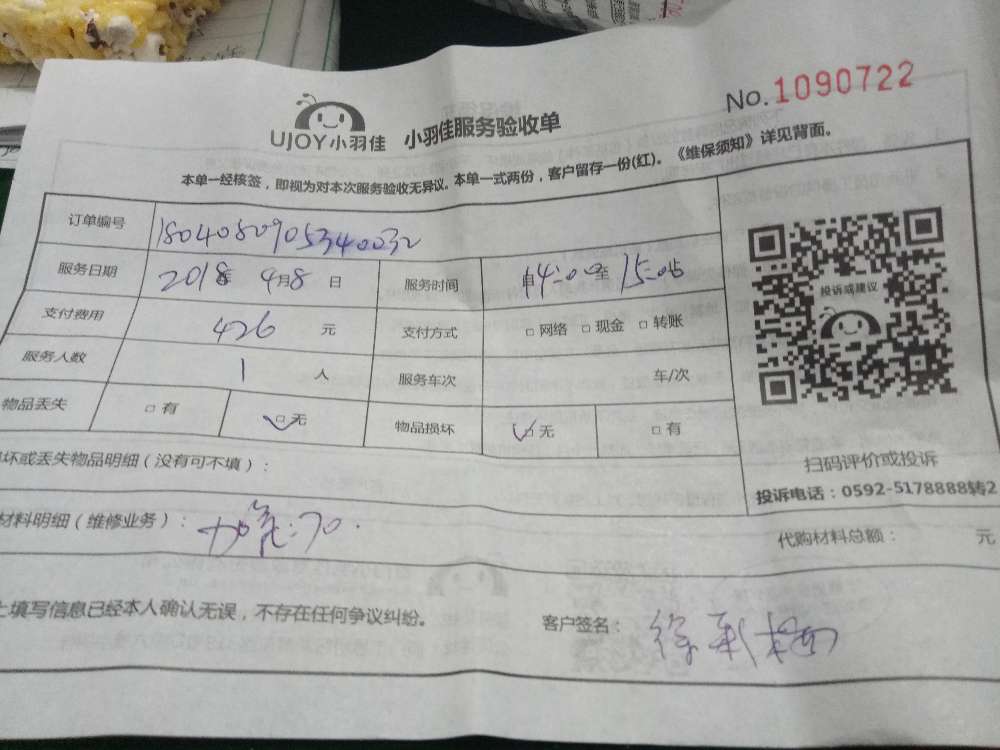 No. 1090722
UJOY小羽佳 小羽佳服务验收单
本单一经核签，即视为对本次服务验收无异议。本单一式两份，客户留存一份(红)。《维保须知》详见背面。
订单编号 1804080905340032
服务日期 2018年 4月8日 服务时间 自14:00至15:05
支付费用 426 元 支付方式 □网络 □现金 □转账
服务人数 1 人 服务车次 车/次
物品丢失 □有 □无 物品损坏 □无 □有
投诉或建议
扫码评价或投诉
投诉电话：0592-5178888转2
坏或丢失物品明细（没有可不填）：
材料明细（维修业务）： 加氟:70.
代购材料总额： 元
上填写信息已经本人确认无误，不存在任何争议纠纷。
客户签名：